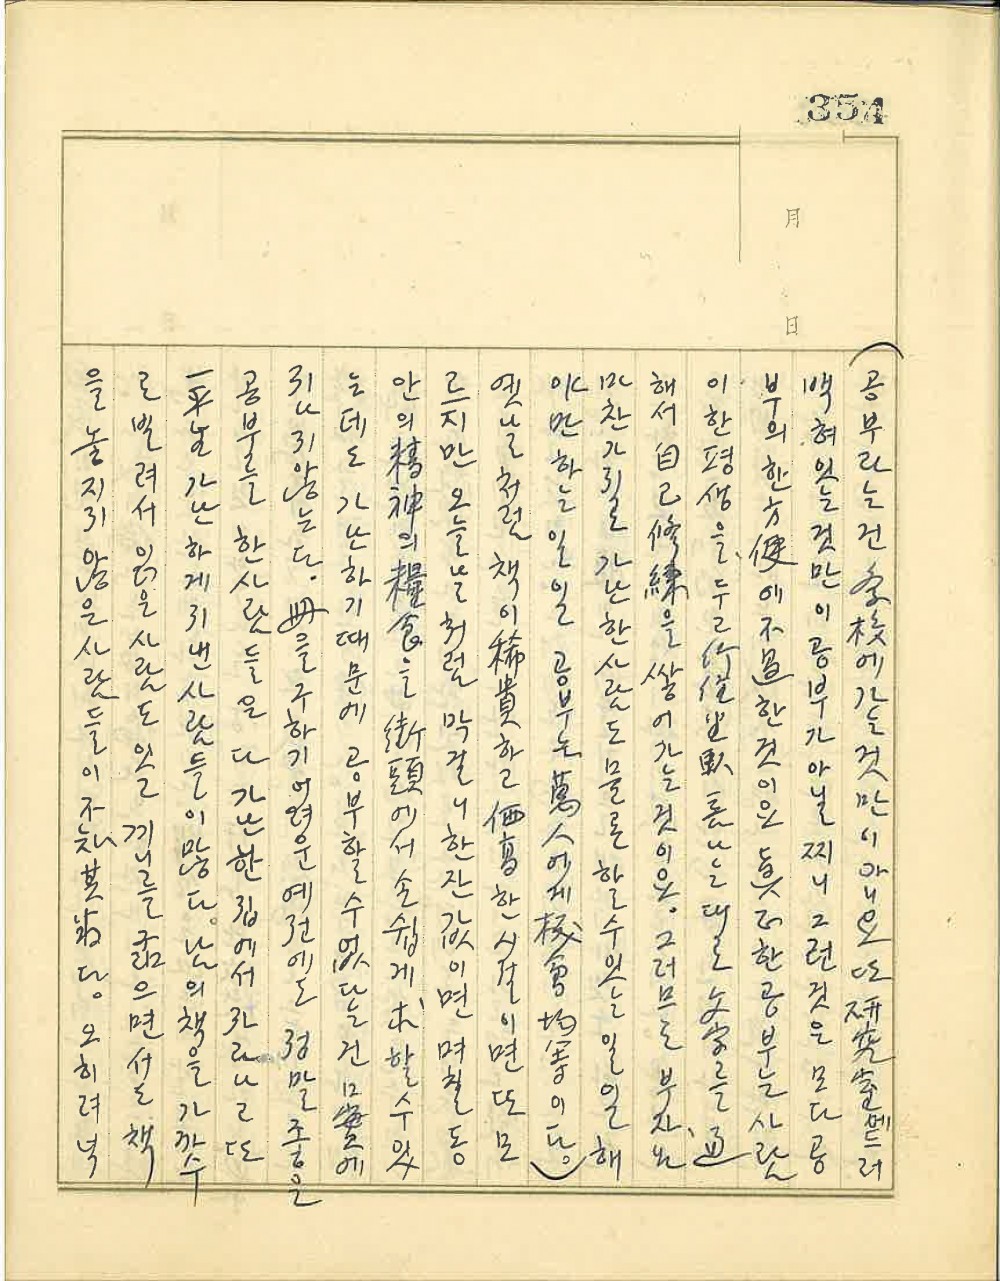 354
月
日
(공부라는건 學校에가는것만이아니요 또 硏究室에드러
백혀잇는것만이공부가아닐찌니 그런것은 모다 공
부의한方便에不過한것이요 眞正한공부는 사람
이한평생을 두고 行住坐臥 틈나는대로 文字를 通
해서 自己修練을 쌓어가는것이요. 그러므로 부자나
마찬가지로 가난한사람도 물론 할수잇는일일 해
야만하는일일 공부는 萬人에게 機會均等이다.)
옛날처럼 책이稀貴하고 価高한시절이면 또모
르지만 오늘날처럼 막걸니한잔값이면 며칠동
안의精神의糧食을 街頭에서손쉽게求할수잇
는데도 가난하기때문에 공부할수없다는건 口實에
지나지않는다. 冊을구하기어려운예전에도 정말좋은
공부를 한사람들은 다 가난한집에서 자라나고 또
一平生가난하게지낸사람들이많다. 남의책을가끔
로빌려서 읽은사람도잇고 끼니를굶으면서도책
을놓지지않은사람들이不知其數다. 오히려넉